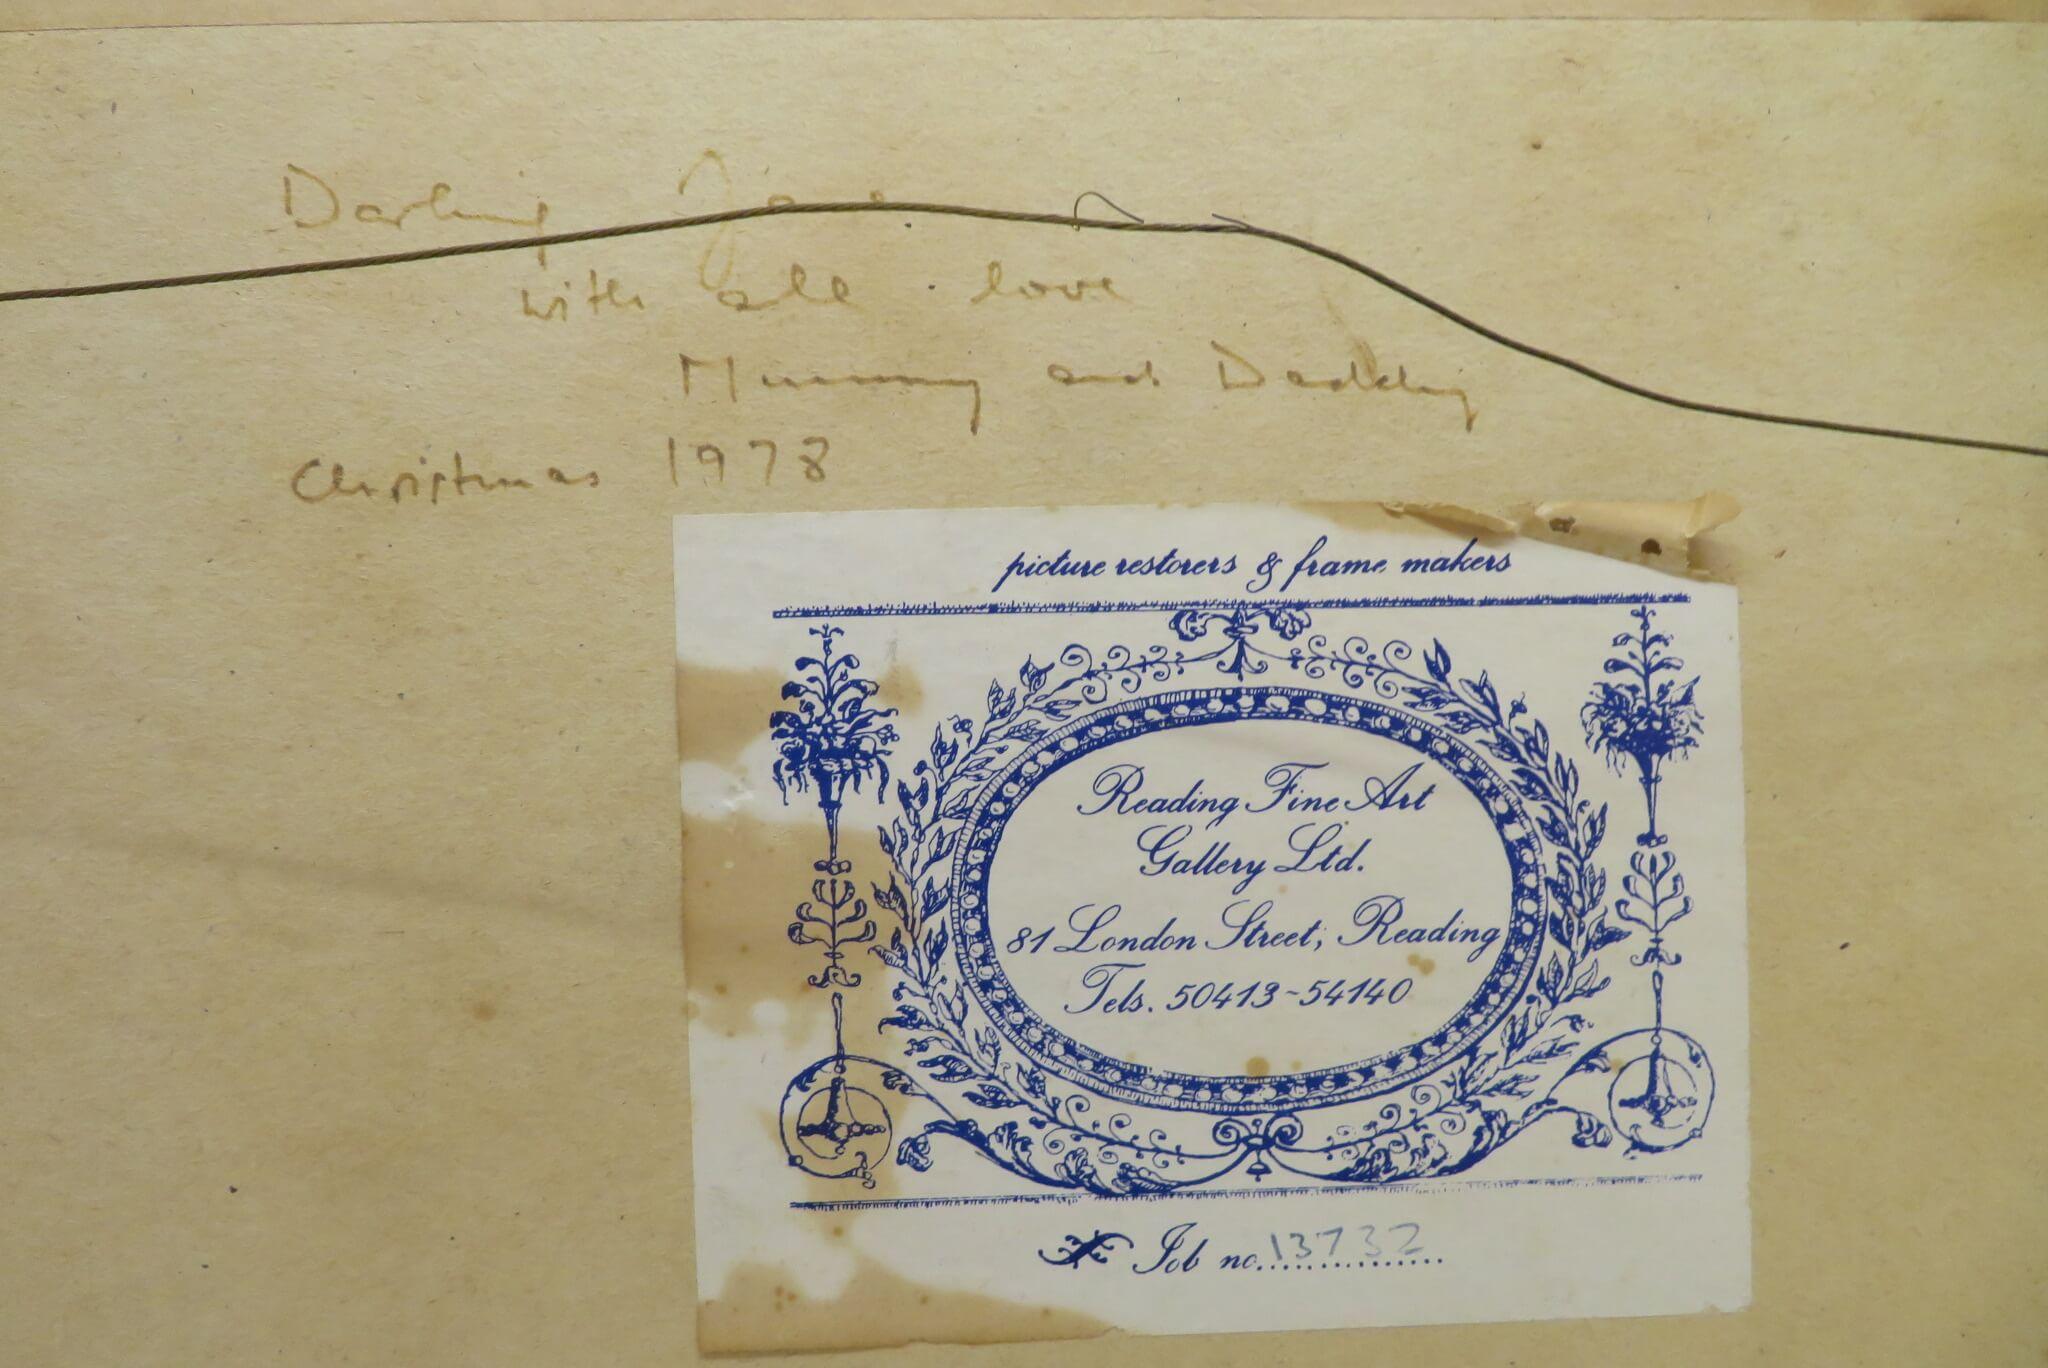 Darling Jane
with all love
Mummy and Daddy
Christmas 1978
picture restorers & frame makers
Reading Fine Art
Gallery Ltd.
81 London Street, Reading
Tels. 50413-54140
Job no. 13732